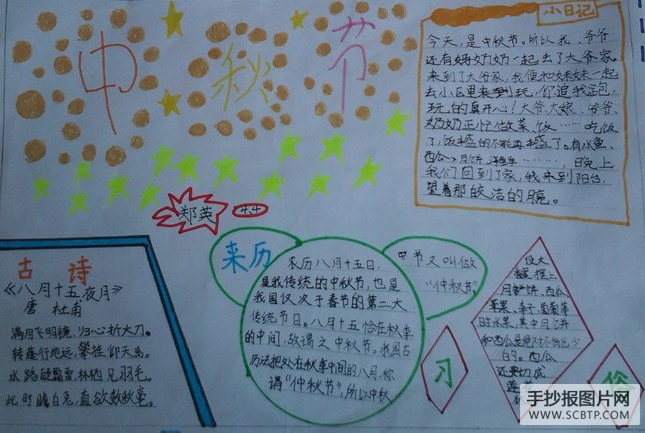 中秋节
小日记
今天,是中秋节。所以我、爷爷
还有妈奶奶一起去了大爷家。
来到了大爷家,我便和妹妹一起
去小区里来到玩,你追我赶,
玩的真开心!大爷大娘、爷爷、
奶奶正忙做菜、饭……吃饭
了,饭丰盛的不能再盛了。有鱼、
西瓜、月饼、………,晚上
我们回到了家,我来到阳台,
望着那皎洁的腕。
郑英
4.4
古诗
《八月十五夜月》
唐 杜甫
满月飞明镜,归心折大刀。
转蓬行地远,攀桂仰天高。
水路疑霜雪,林栖见羽毛。
此时瞻白兔,直欲数秋毫。
来历
来历八月十五日,
是我传统的中秋节,也是
我国仅次于春节的第二大
传统节日。八月十五恰在秋季
的中间,故谓之中秋节。我国古
历法把处在秋季中间的八月,称
谓“仲秋节”,所以中秋
中节又叫做
“仲秋节”
习
俗
设大
摆上
月饼、西瓜、
苹果、李子、葡萄等
时水果,其中月饼
和西瓜是绝对不能少
的。西瓜
还要切成
莲
手抄报图片网
WWW.SCBTP.COM